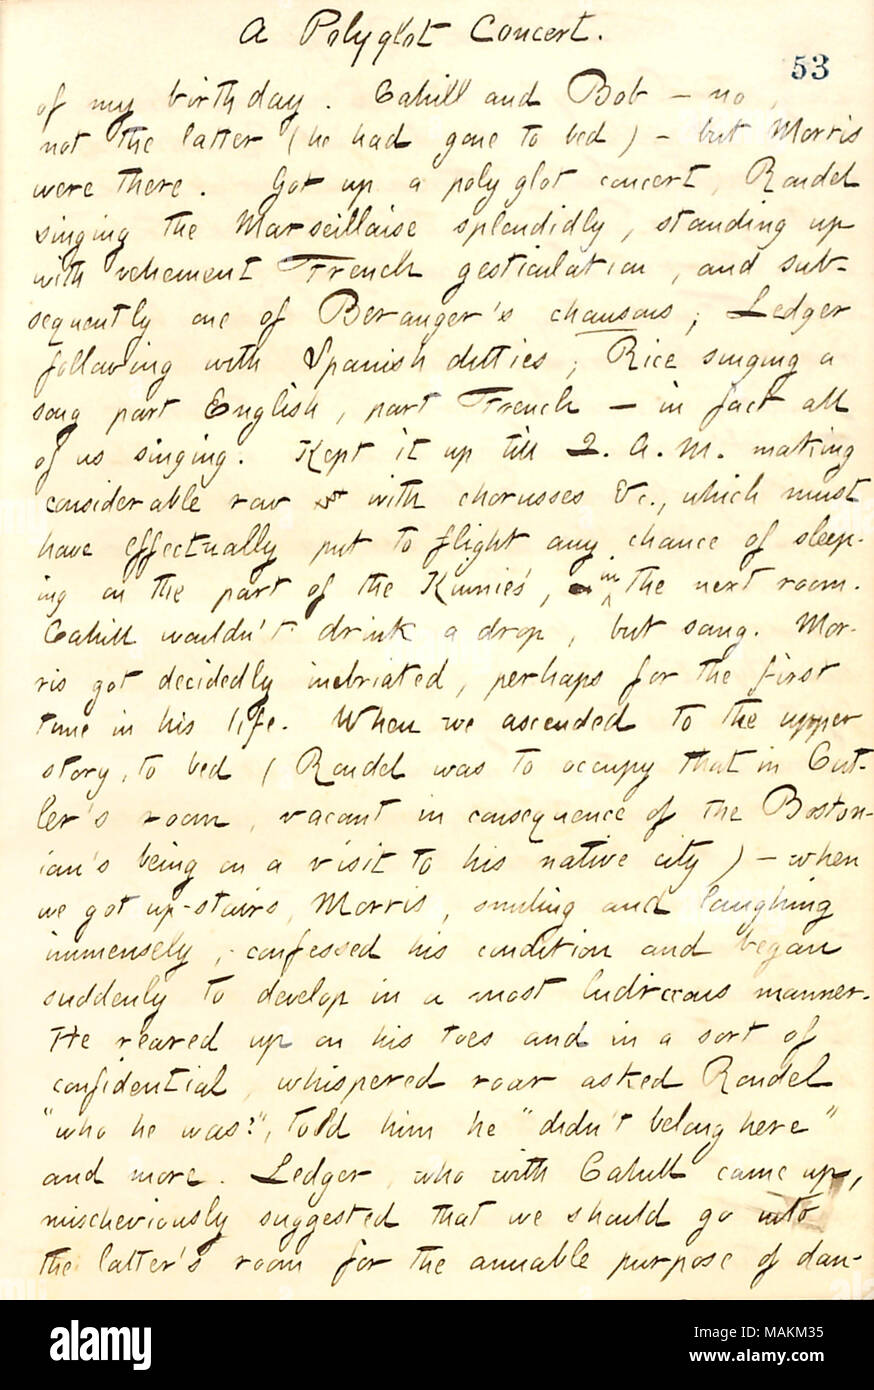 A Polyglot Concert.
53
of my birthday. Cahill and Bob — no,
not the latter (he had gone to bed) — but Morris
were there. Got up a polyglot concert, Rondel
singing the Marseillaise splendidly, standing up
with vehement French gesticulation, and sub-
sequently one of Beranger's chansons; Ledger
following with Spanish ditties; Rice singing a
song part English, part French — in fact all
of us singing. Kept it up till 2. A. M. making
considerable row with chorusses &c., which must
have effectually put to flight any chance of sleep-
ing on the part of the Kinnies', in the next room.
Cahill wouldn't drink a drop, but sang. Mor-
ris got decidedly inebriated, perhaps for the first
time in his life. When we ascended to the upper
story, to bed (Rondel was to occupy that in Cut-
ler's room, vacant in consequence of the Boston-
ian's being on a visit to his native city) — when
we got up-stairs, Morris, smiling and laughing
immensely, confessed his condition and began
suddenly to develop in a most ludicrous manner.
He reared up on his toes and in a sort of
confidential, whispered roar asked Rondel
"who he was?", told him he "didn't belong here"
and more. Ledger, who with Cahill came up,
mischeviously suggested that we should go into
the latter's room for the amiable purpose of dan-
alamy
Image ID: MAKM35
www.alamy.com